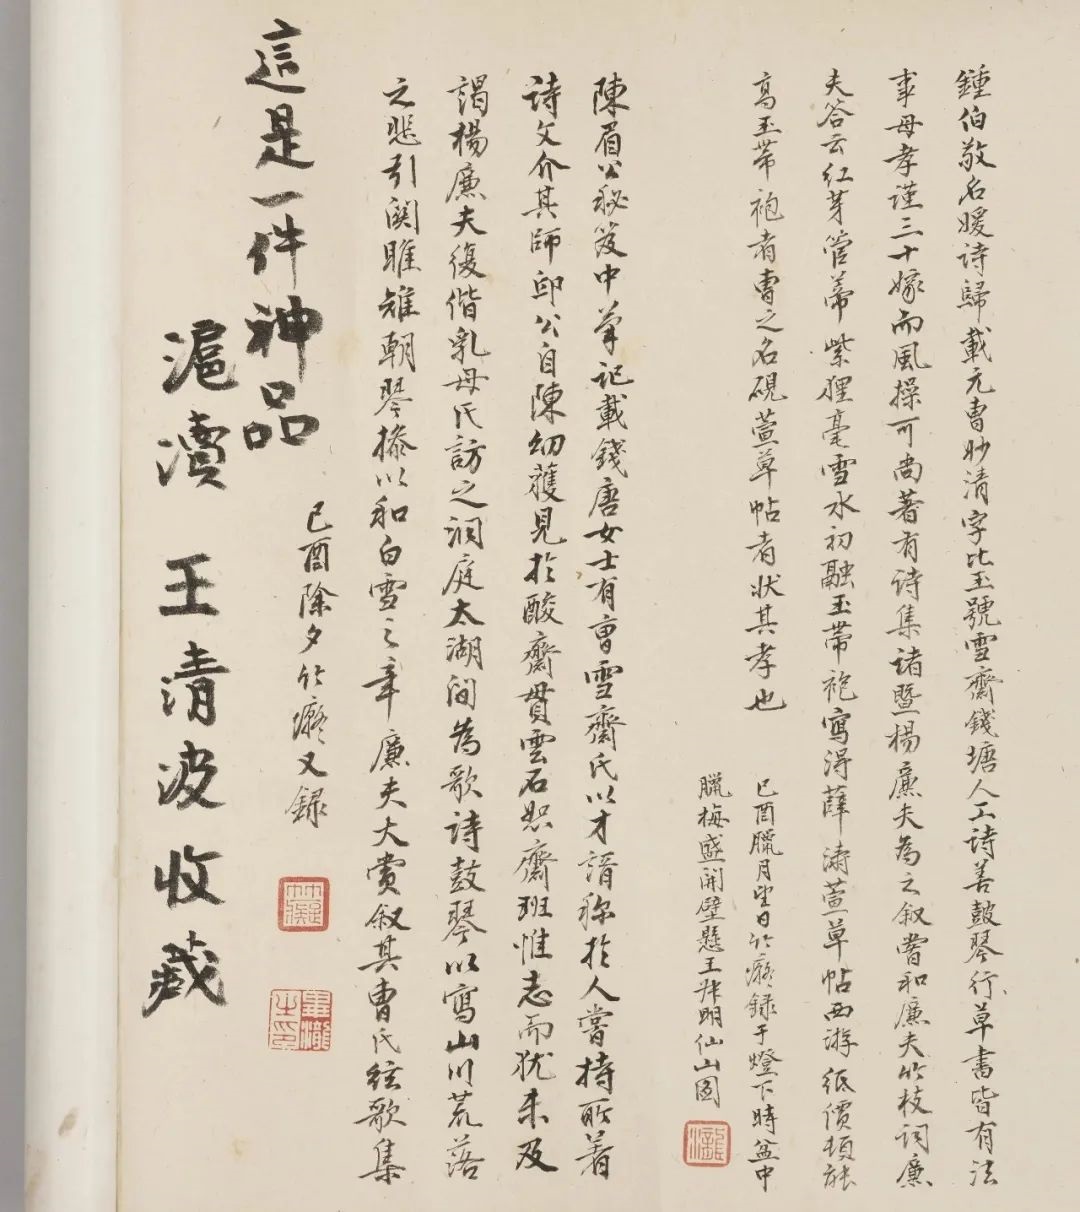 鍾伯敬名媛詩歸載元曹妙清字比玉號雪齋錢塘人工詩善鼓琴行草書皆有法
事母孝謹三十嫁而風操可尚著有詩集諸暨楊廉夫為之叙嘗和廉夫竹枝詞廉
夫答云紅芽管蒂紫狸毫雪水初融玉帶袍寫得薛濤萱草帖西游紙價頓能
高玉帶袍者曹之名硯萱草帖者狀其孝也
己酉臘月望日竹癡錄于燈下時盆中
臘梅盛開壁懸王叔明仙山圖
陳眉公秘笈中筆記載錢唐女士有曹雪齋氏以才諝称於人嘗持所著
詩文介其師邱公自陳幼獲見於酸齋貫雲石恕齋班惟志而犹未及
謁楊廉夫復偕乳母氏訪之洞庭太湖間為歌詩鼓琴以寫山川荒落
之悲引関雎雉朝琴操以和白雪之章廉夫大賞叙其曹氏絃歌集
己酉除夕竹癡又録
這是一件神品
滬瀆 王清波收藏
竹癡
畢瀧之印
瀧